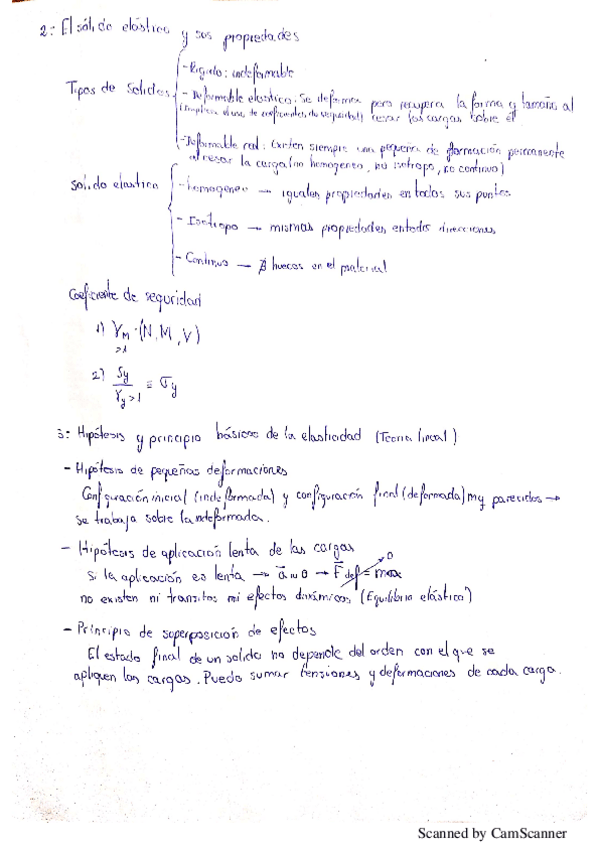 2: El sólido elástico y sus propiedades
Tipos de solidos
- Rigido: indeformable
- Deformable elastico: Se deforma pero recupera la forma y tamaño al
(implica el uso de coeficientes de seguridad) cesar las cargas sobre él
- Deformable real: Existen siempre una pequeña deformación permanente
al cesar la carga (no homogeneo, no isotropo, no continuo)
Solido elastico
- homogeneo → iguales propiedades en todos sus puntos
- Isotropo → mismas propiedades en todas direcciones
- Continuo → ∄ huecos en el material
Coeficiente de seguridad
1) γM · (N, M, V)
>1
2) Sy / γy >1 ≡ σy
3: Hipótesis y principio básicos de la elasticidad (Teoria lineal)
- Hipótesis de pequeñas deformaciones
Configuración inicial (indeformada) y configuración final (deformada) muy parecidos →
se trabaja sobre la indeformada.
- Hipótesis de aplicación lenta de las cargas
Si la aplicación es lenta → a ≈ 0 → F def = m·a 0
no existen ni transitos ni efectos dinámicos (Equilibrio elástico)
- Principio de superposición de efectos
El estado final de un solido no depende del orden con el que se
apliquen las cargas. Puedo sumar tensiones y deformaciones de cada carga.
Scanned by CamScanner